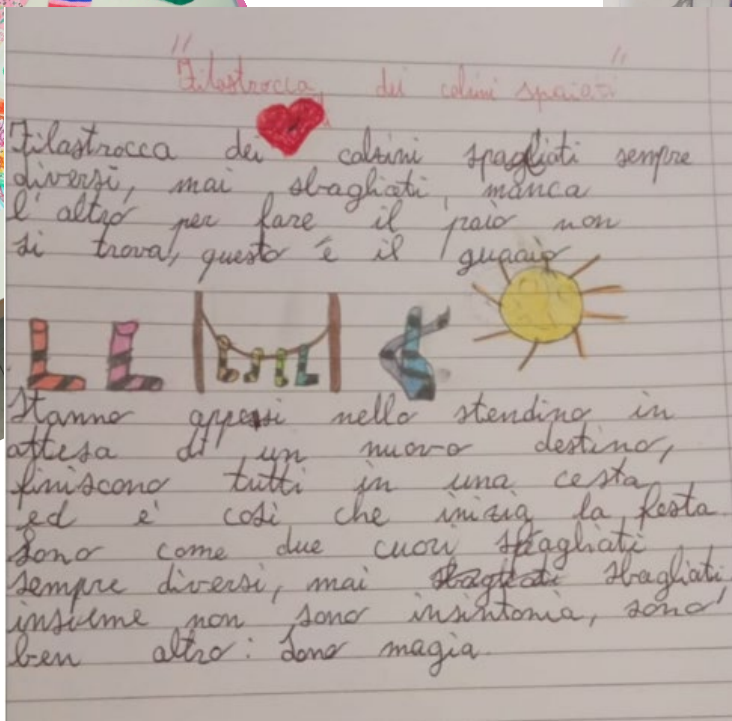 "Filastrocca dei calsini spaiati"
Filastrocca dei calsini spagliati sempre
diversi, mai sbagliati, manca
l'altro per fare il paio non
si trova, questo è il guaaio
Stanno appesi nello stendino in
attesa di un nuovo destino,
finiscono tutti in una cesta
ed è così che inizia la festa.
Sono come due cuori spagliati
sempre diversi, mai sbagliati sbagliati
insieme non sono insintonia, sono
ben altro: sono magia.